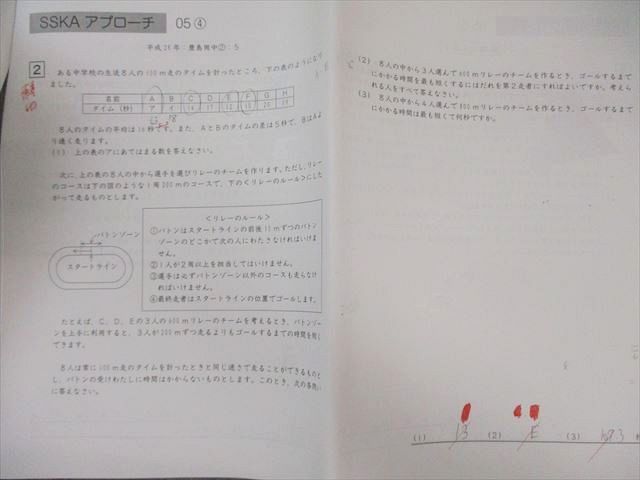 SSKA アプローチ 05④
平成26年 豊島岡中②:5
2
ある中学校の生徒8人の100m走のタイムを計ったところ、下の表のようになり
ました。
名前 A B C D E F G H
タイム(秒) ア イ
13 18
8人のタイムの平均は16秒です。また、AとBのタイムの差は5秒で、BはAよ
り遅く走ります。
(1) 上の表のアにあてはまる数を答えなさい。
次に、上の表の8人の中から選手を選びリレーのチームを作ります。ただし、リレー
のコースは下の図のような1周200mのコースで、下の<リレーのルール>にした
がって走るものとします。
バトンゾーン
スタートライン
<リレーのルール>
①バトンはスタートラインの前後10mずつのバトン
ゾーンのどこかで次の人にわたさなければいけませ
ん。
②1人が2周以上を担当してはいけません。
③選手は必ずバトンゾーン以外のコースも走らなけ
ればいけません。
④最終走者はスタートラインの位置でゴールします。
たとえば、C、D、Eの3人の600mリレーのチームを考えるとき、バトンゾー
ンを上手に利用すると、3人が200mずつ走るよりもゴールするまでの時間を短く
できます。
8人は常に100m走のタイムを計ったときと同じ速さで走ることができるものと
し、バトンの受けわたしに時間はかからないものとします。このとき、次の各問い
に答えなさい。
(2) 8人の中から3人選んで600mリレーのチームを作るとき、ゴールするまで
にかかる時間を最も短くするにはだれを第2走者にすればよいですか。考えら
れる人をすべて答えなさい。
(3) 8人の中から4人選んで800mリレーのチームを作るとき、ゴールするまで
にかかる時間は最も短くて何秒ですか。
(1) 13 (2) E (3)